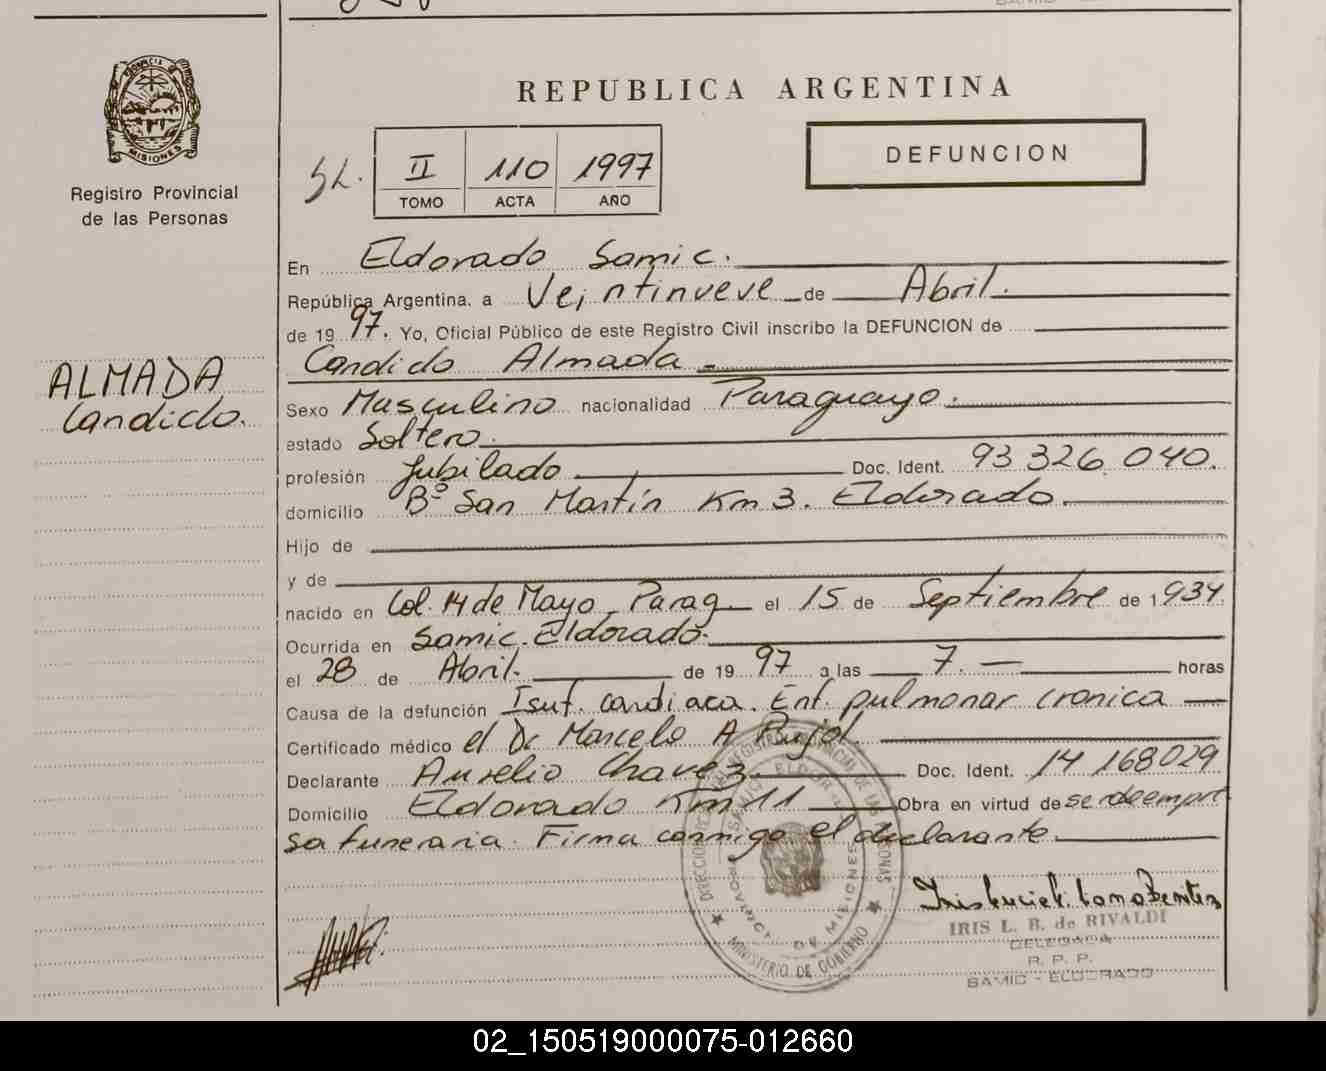 REPUBLICA ARGENTINA
MISIONES
Registro Provincial
de las Personas
SL. II 110 1997
TOMO ACTA AÑO
DEFUNCION
En Eldorado Samic.
República Argentina, a Veintinueve de Abril.
de 1997. Yo, Oficial Público de este Registro Civil inscribo la DEFUNCION de
Candido Almada
ALMADA
Candido.
Sexo Masculino nacionalidad Paraguayo.
estado Soltero.
profesión Jubilado Doc. Ident. 93 326 040.
domicilio Bº San Martín Km 3. Eldorado.
Hijo de
y de
nacido en Col. 14 de Mayo, Parag el 15 de Septiembre de 1934.
Ocurrida en Samic. Eldorado.
el 28 de Abril. de 1997 a las 7. — horas
Causa de la defunción Isuf. cardiaca. Enf. pulmonar cronica
Certificado médico el Dr Marcelo A Pujol.
Declarante Aurelio Chavez Doc. Ident. 14 168029
Domicilio Eldorado Km 11 Obra en virtud de se de empre
sa funeraria. Firma conmigo el declarante.
IRIS L. B. de RIVALDI
DELEGADA
R. P. P.
SAMIC - ELDORADO
MINISTERIO DE GOBIERNO
DE MISIONES
02_150519000075-012660